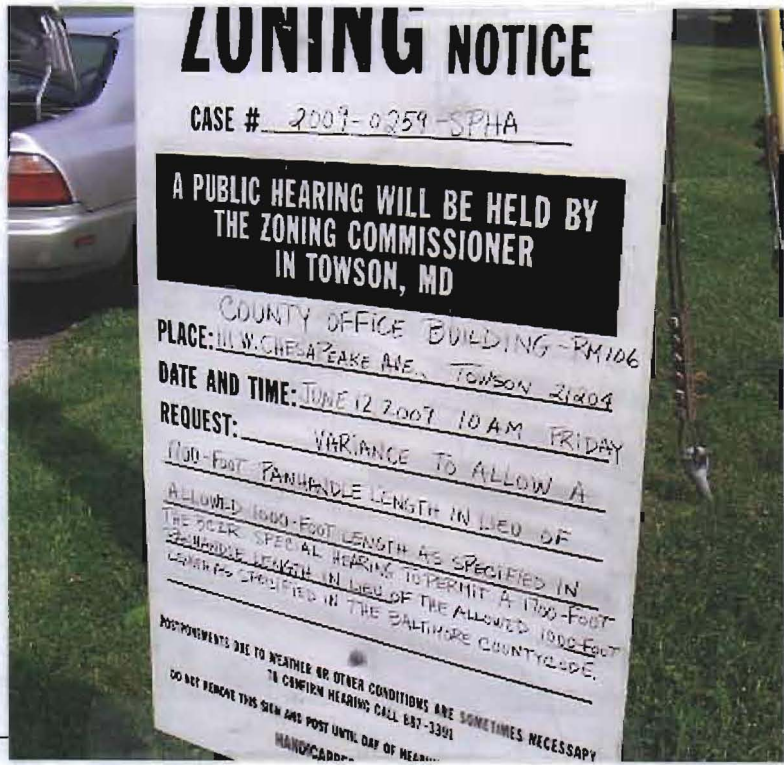 ZONING NOTICE
CASE # 2009-0259-SPHA
A PUBLIC HEARING WILL BE HELD BY
THE ZONING COMMISSIONER
IN TOWSON, MD
COUNTY OFFICE BUILDING-RM106
PLACE: 111 W. CHESAPEAKE AVE., TOWSON 21204
DATE AND TIME: JUNE 12 2009 10 AM FRIDAY
REQUEST: VARIANCE TO ALLOW A
1700-FOOT PANHANDLE LENGTH IN LIEU OF
ALLOWED 1000-FOOT LENGTH AS SPECIFIED IN
THE BCZR SPECIAL HEARING TO PERMIT A 1700-FOOT
PANHANDLE LENGTH IN LIEU OF THE ALLOWED 1000-FOOT
LENGTH AS SPECIFIED IN THE BALTIMORE COUNTY CODE.
POSTPONEMENTS DUE TO WEATHER OR OTHER CONDITIONS ARE SOMETIMES NECESSARY
TO CONFIRM HEARING CALL 887-3391
DO NOT REMOVE THIS SIGN AND POST UNTIL DAY OF HEARING